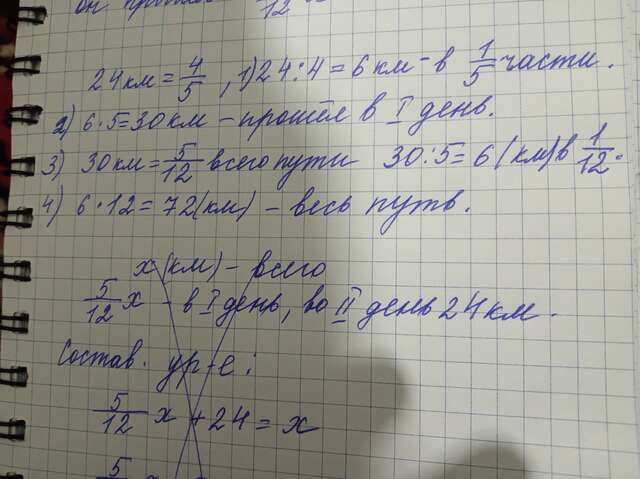 он
12
24 км = 4/5, 1) 24 : 4 = 6 км - в 1/5 части.
2) 6·5=30 км - прошёл в I день.
3) 30 км = 5/12 всего пути 30:5=6 (км) в 1/12.
4) 6·12=72(км) - весь путь.
x (км) - всего
5/12 x - в I день, во II день 24 км.
Состав. ур-е:
5/12 x + 24 = x
5